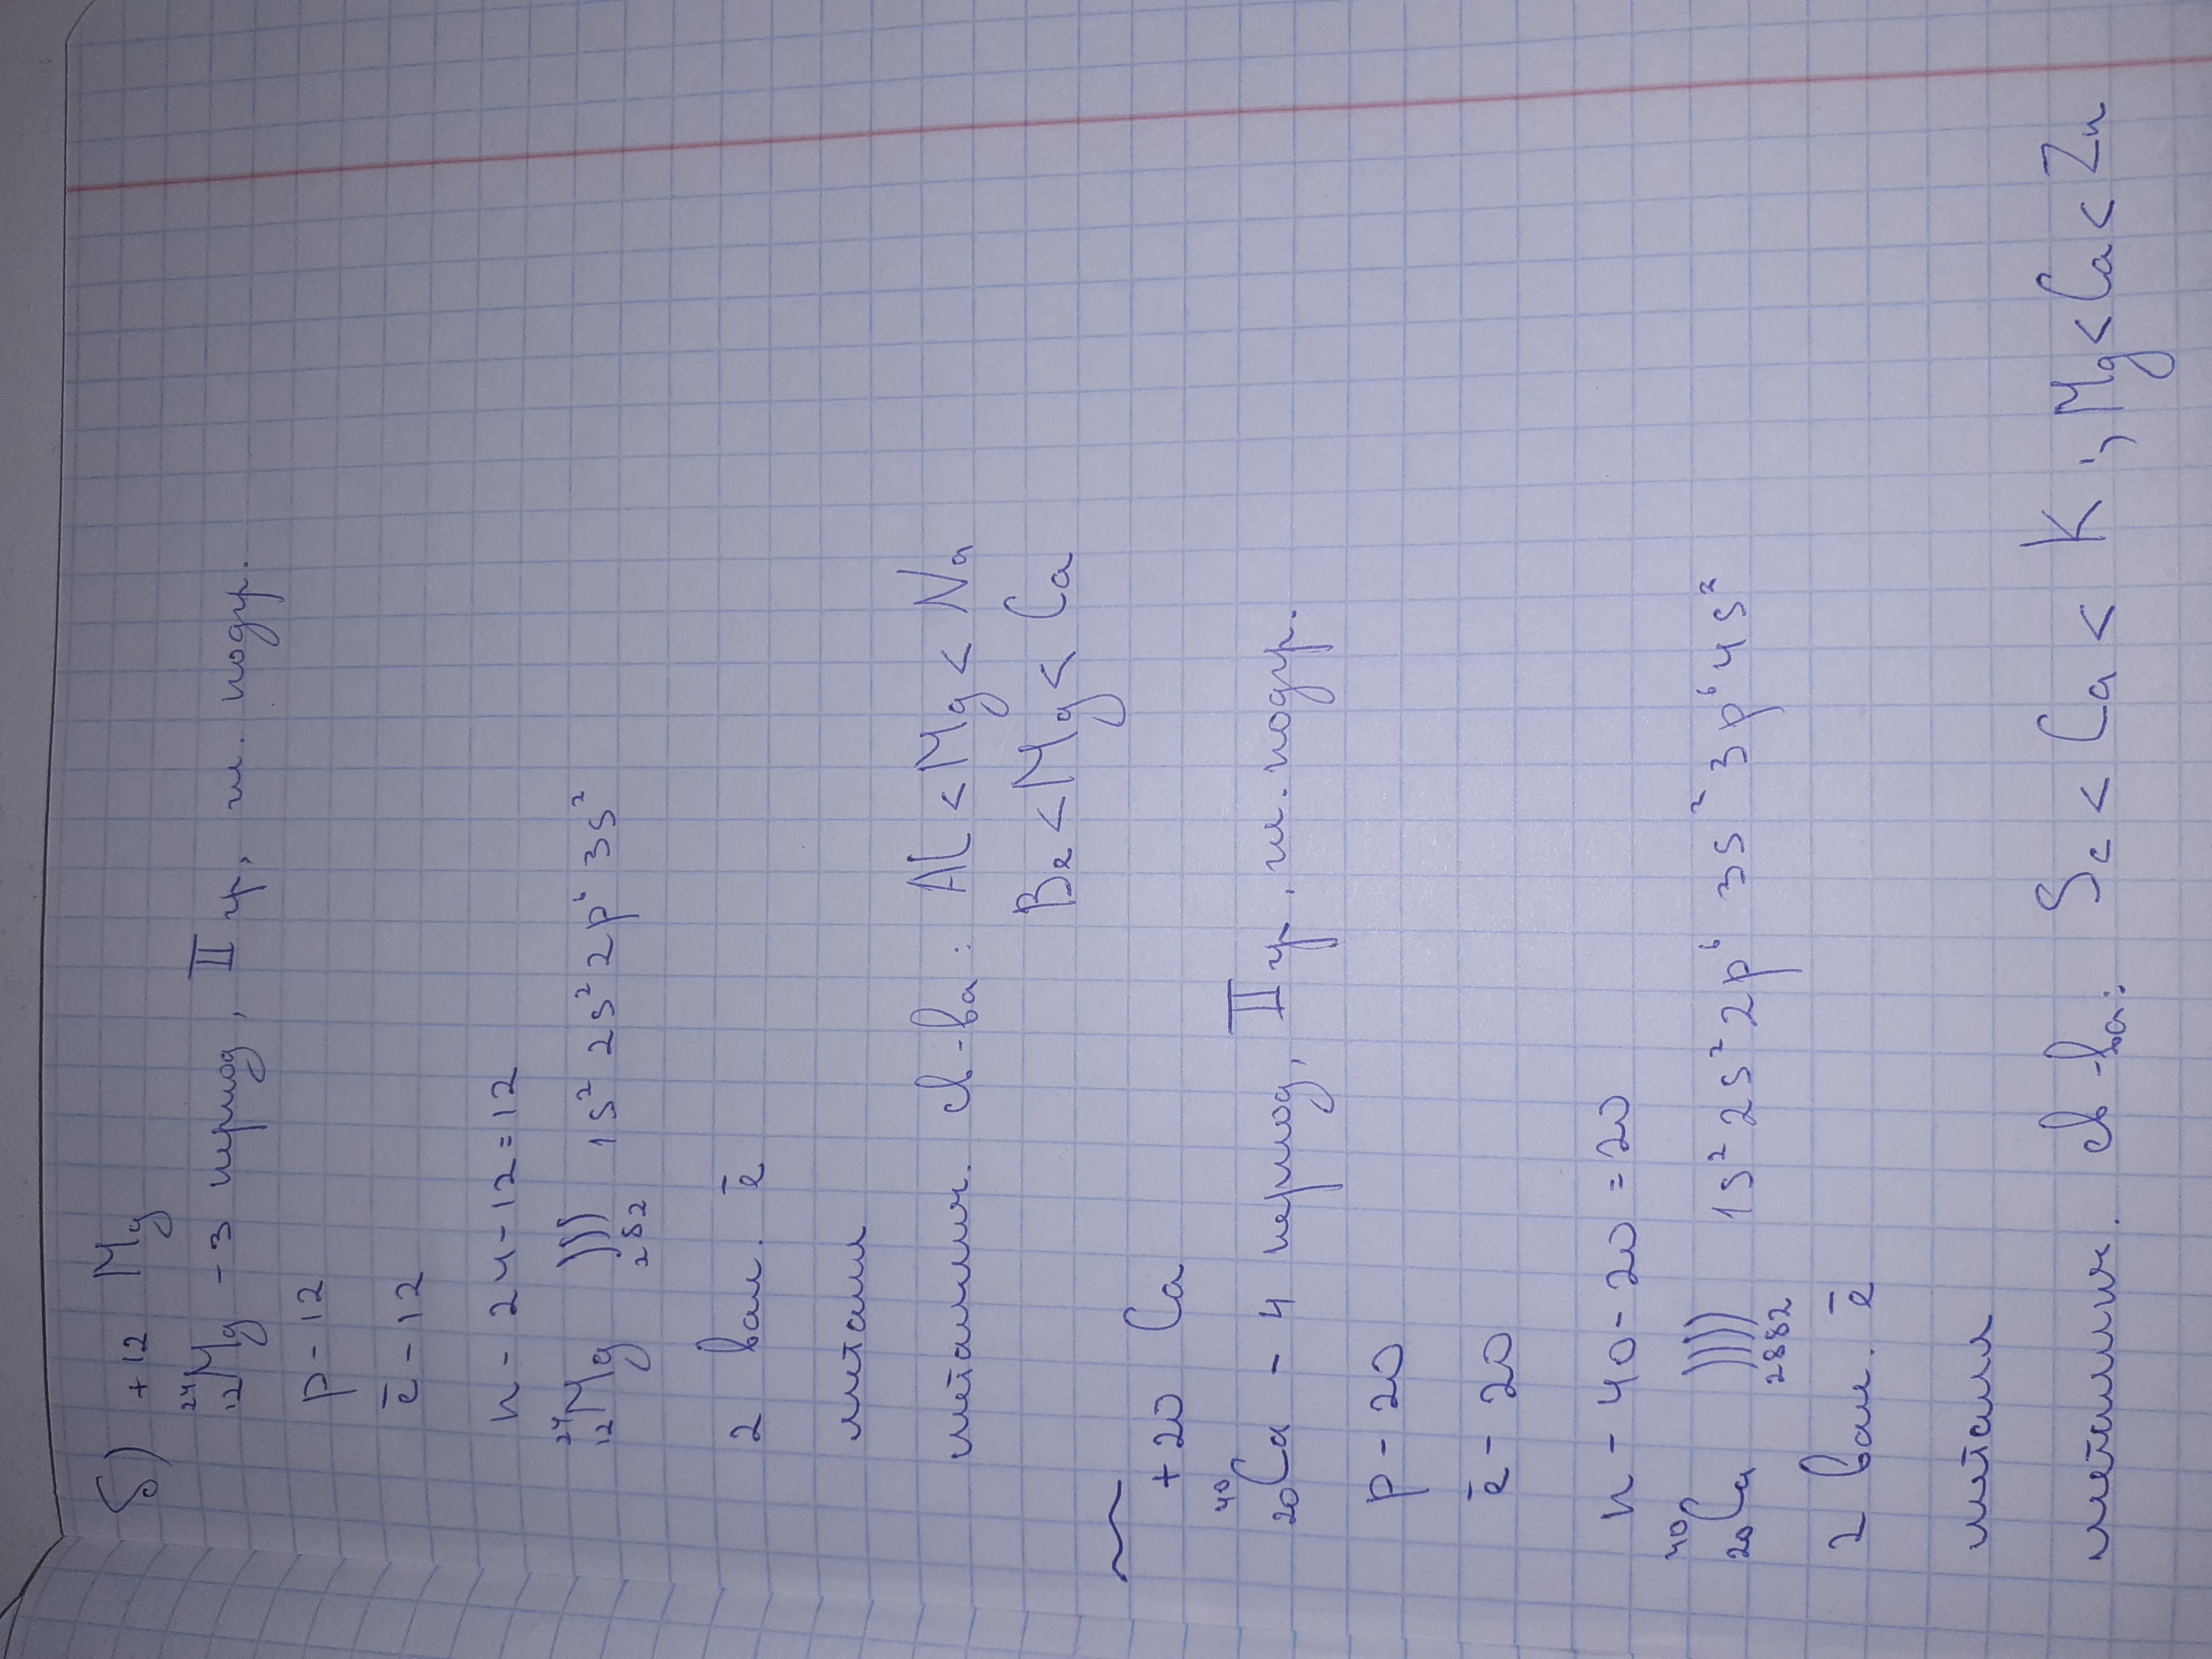 б) +12 Mg
²⁴₁₂Mg - 3 период, II гр, гл. подгр.
p - 12
ē - 12
n - 24 - 12 = 12
²⁴₁₂Mg ))) 1s² 2s² 2p⁶ 3s²
2 8 2
2 вал. ē
металл
металлич. св-ва: Al < Mg < Na
Be < Mg < Ca
+20 Ca
⁴⁰₂₀Ca - 4 период, II гр. гл. подгр.
p - 20
ē - 20
n - 40 - 20 = 20
⁴⁰₂₀Ca )))) 1s² 2s² 2p⁶ 3s² 3p⁶ 4s²
2 8 8 2
2 вал. ē
металл
металлич. св-ва: Sc < Ca < K ; Mg < Ca < Zn